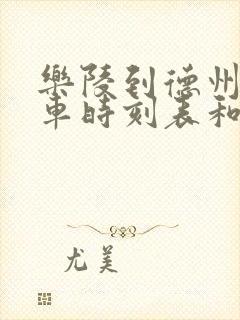 樂陵到德州
車時刻表和
尤美